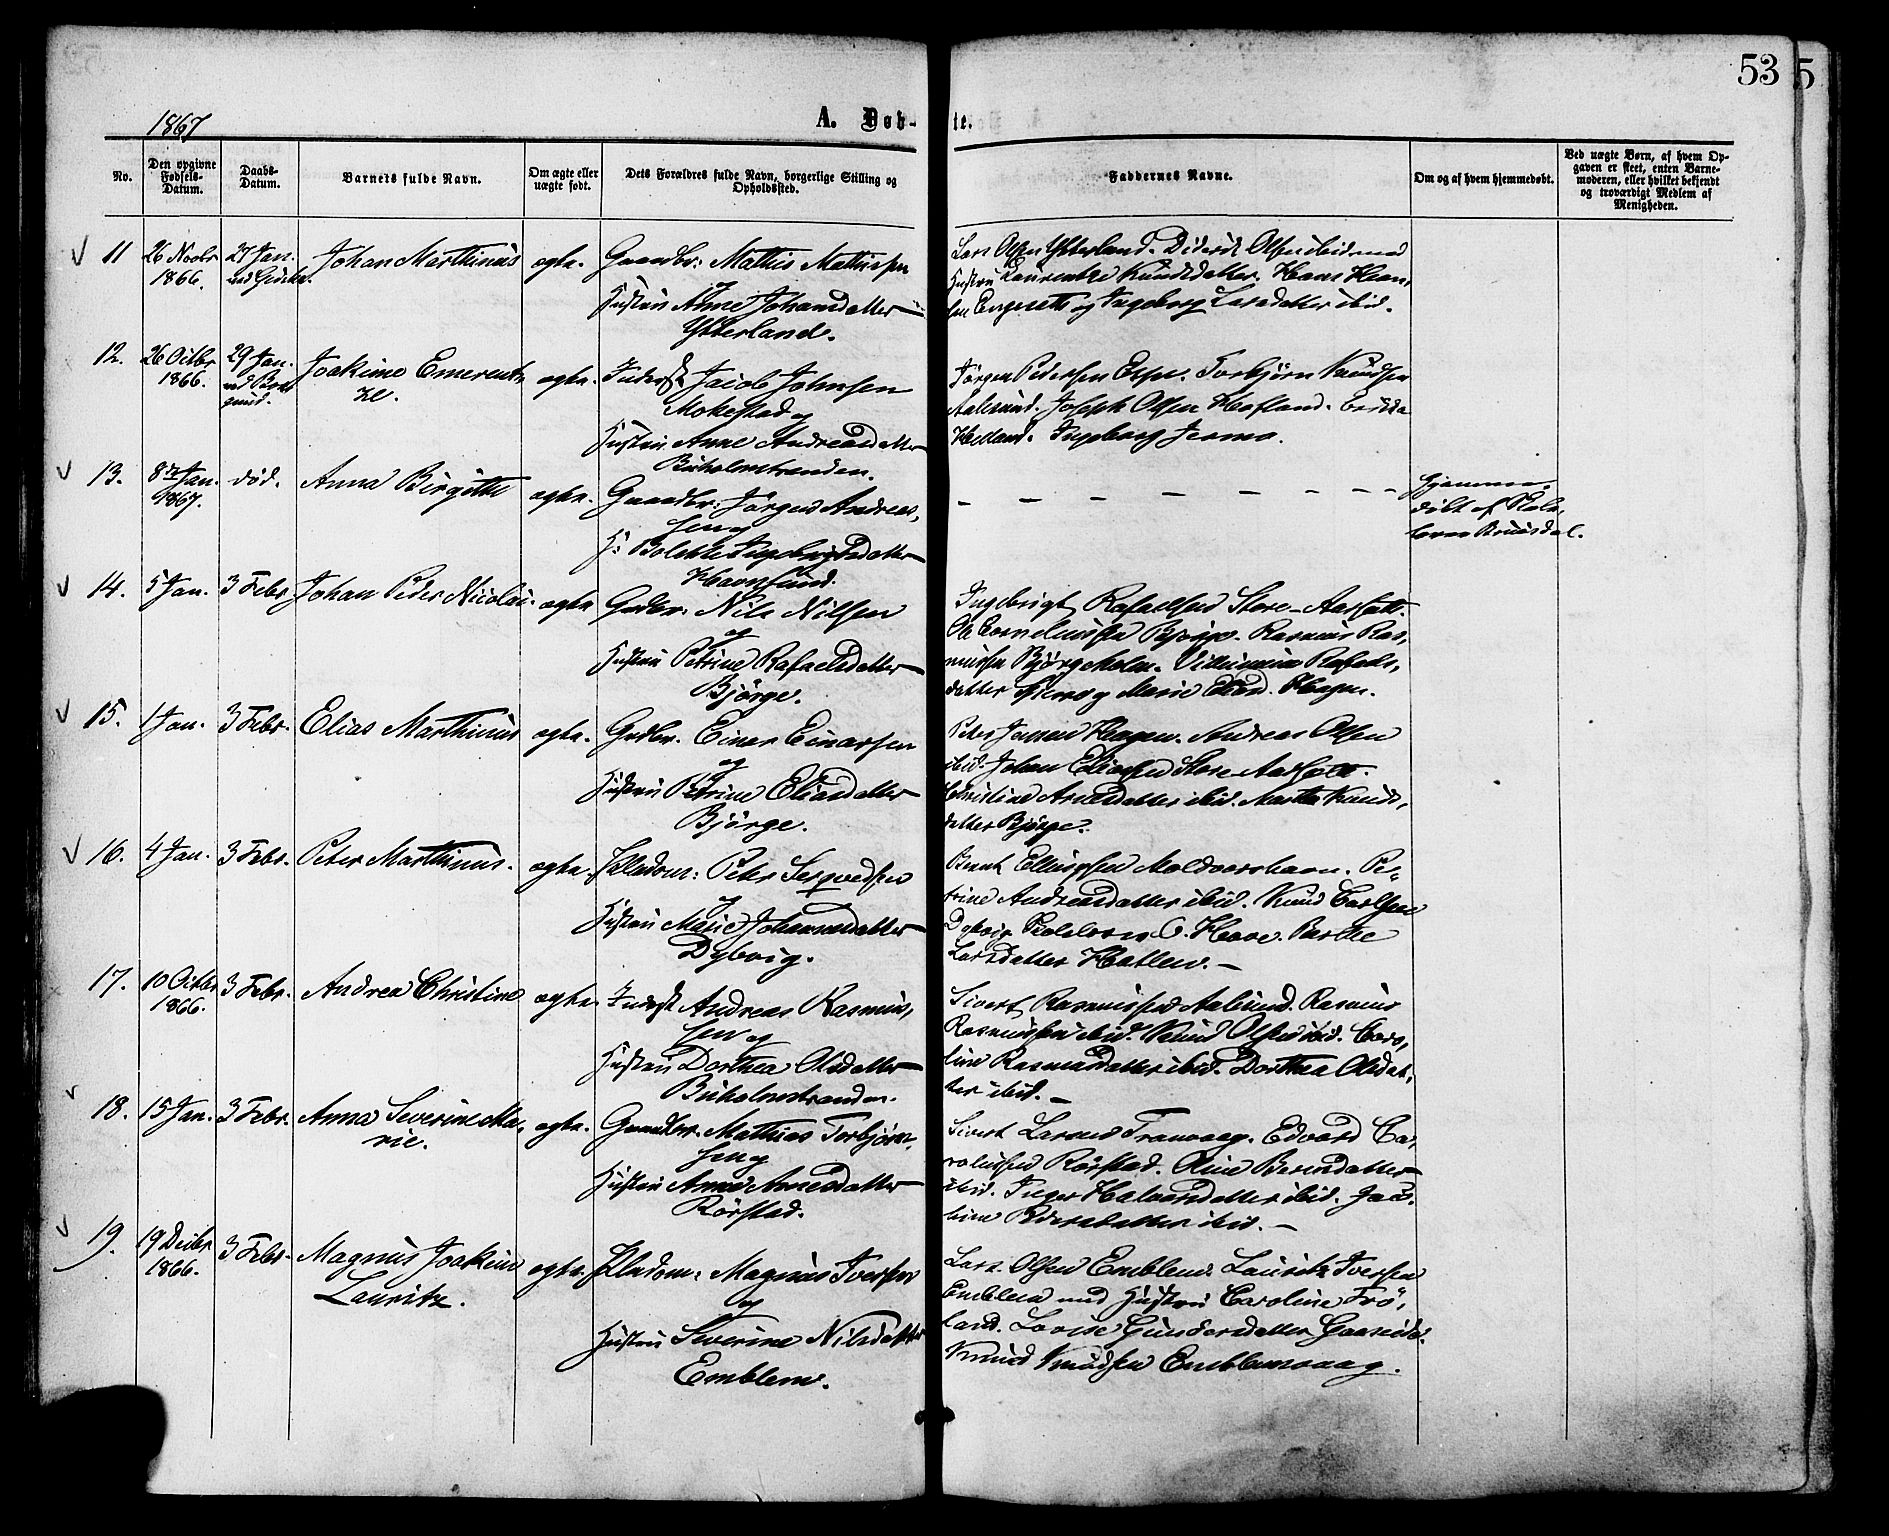 53
5
1867
A. Døb-
te.
No.
Den opgivne Fødsels-Datum.
Daabs-Datum.
Barnets fulde Navn.
Om ægte eller uægte født.
Dets Forældres fulde Navn, borgerlige Stilling og Opholdssted.
Faddernes Navne.
Om og af hvem hjemmedøbt.
Ved uægte Børn, af hvem Opgaven er skeet, enten Barnemoderen, eller hvilket bekjendt og troværdigt Medlem af Menigheden.
11 26 Novbr 27 Jan. Johan Marthinus ægte. Gaardbr: Mathis Mathissen
1866. ved Giske.
og
Hustru Anne Johansdatter
Ytterland.
Lars Olsen Ytterland. Diderik Olsen ibid med
Hustru Laurentze Knudsdatter. Hans Han,
sen Engesett og Ingeborg Larsdatter ibid.
12. 26 Octbr 29 Jan. Joakime Emerent, ægte. Inderst Jacob Johnsen
1866. ved Bor
gund.
ze.
Mokestad og
Hustru Anne Andreasdatter
Buholmstranden.
Jörgen Pedersen Torbjörn Knudsen
Aalesund. Joseph Olsen Hofland.
Helland. Ingeborg
13. 8de Jan. död. Anna Birgitte ægte. Gaardbr: Jörgen Andreas,
1867.
sen og
H: Bolette Ingebrigtsdatter
Havnsund.
Hjemme,
döbt af
14. 5 Jan. 3 Febr. Johan Peder Nicolai. ægte Grdbr. Nils Nilsen
og
Hustru Petrine Rafaelsdatter
Bjørge.
Ingebrigt Rafaelsen Store-Aarsæt.
Ole Corneliussen Bjørge. Rasmus Ras,
mussen Bjørgeholm. Rafaels,
datter og Marie Hagen.
15. 1 Jan. 3 Febr. Elias Marthinus ægte. Grdbr. Einer Einarsen
og
Hustru Petrine Eliasdatter
Bjørge.
Peter Jansen Hagen. Andreas Olsen
ibid. Johan Eliassen Store-Aarsæt.
Christine Arnesdatter ibid. Martha Knuds,
datter Bjørge.
16. 4 Jan. 3 Febr. Peter Marthinus. ægte. Pladsm: Peter
og
Hustru Marie Johannesdatter
Dybvig.
Bernt Moldværshavn. Pe-
trine Andreasdatter ibid. Knud Carlsen
Dybvig O. Have.
Larsdatter Hatlen.
17. 10 Octbr 3 Febr. Andrea Christine ægte Inderst Andreas Rasmus,
1866.
sen og
Hustru Dorthea Olsdatter
Buholmstranden.
Sivert Rasmussen Aalesund. Rasmus
Rasmussen ibid. Knud Olsen ibid. Caro,
line Rasmusdatter ibid. Dorthea Olsdat,
ter ibid.
18. 15 Jan. 3 Febr. Anna Severine Ma, ægte. Gaardbr. Mathias Torbjörn,
rie.
sen og
Hustru Anne Arnesdatter
Rörstad.
Sivert Larsen Tranvaag. Edvard Ca,
rolussen Rörstad. Oline
ibid. Inger Halvorsdatter ibid. Jaco,
bine Pedersdatter ibid.
19. 19 Decbr 3 Febr. Magnus Joakim ægte. Pladsm: Magnus Iversen
1866.
Lauritz.
og
Hustru Severine Nilsdatter
Emblem.
Lars Olsen Emblem. Lauritz Iversen
Emblem med Hustru Caroline Frö,
land. Lovise Gundersdatter Gaaseide.
Knud Knudsen Emblemsvaag.